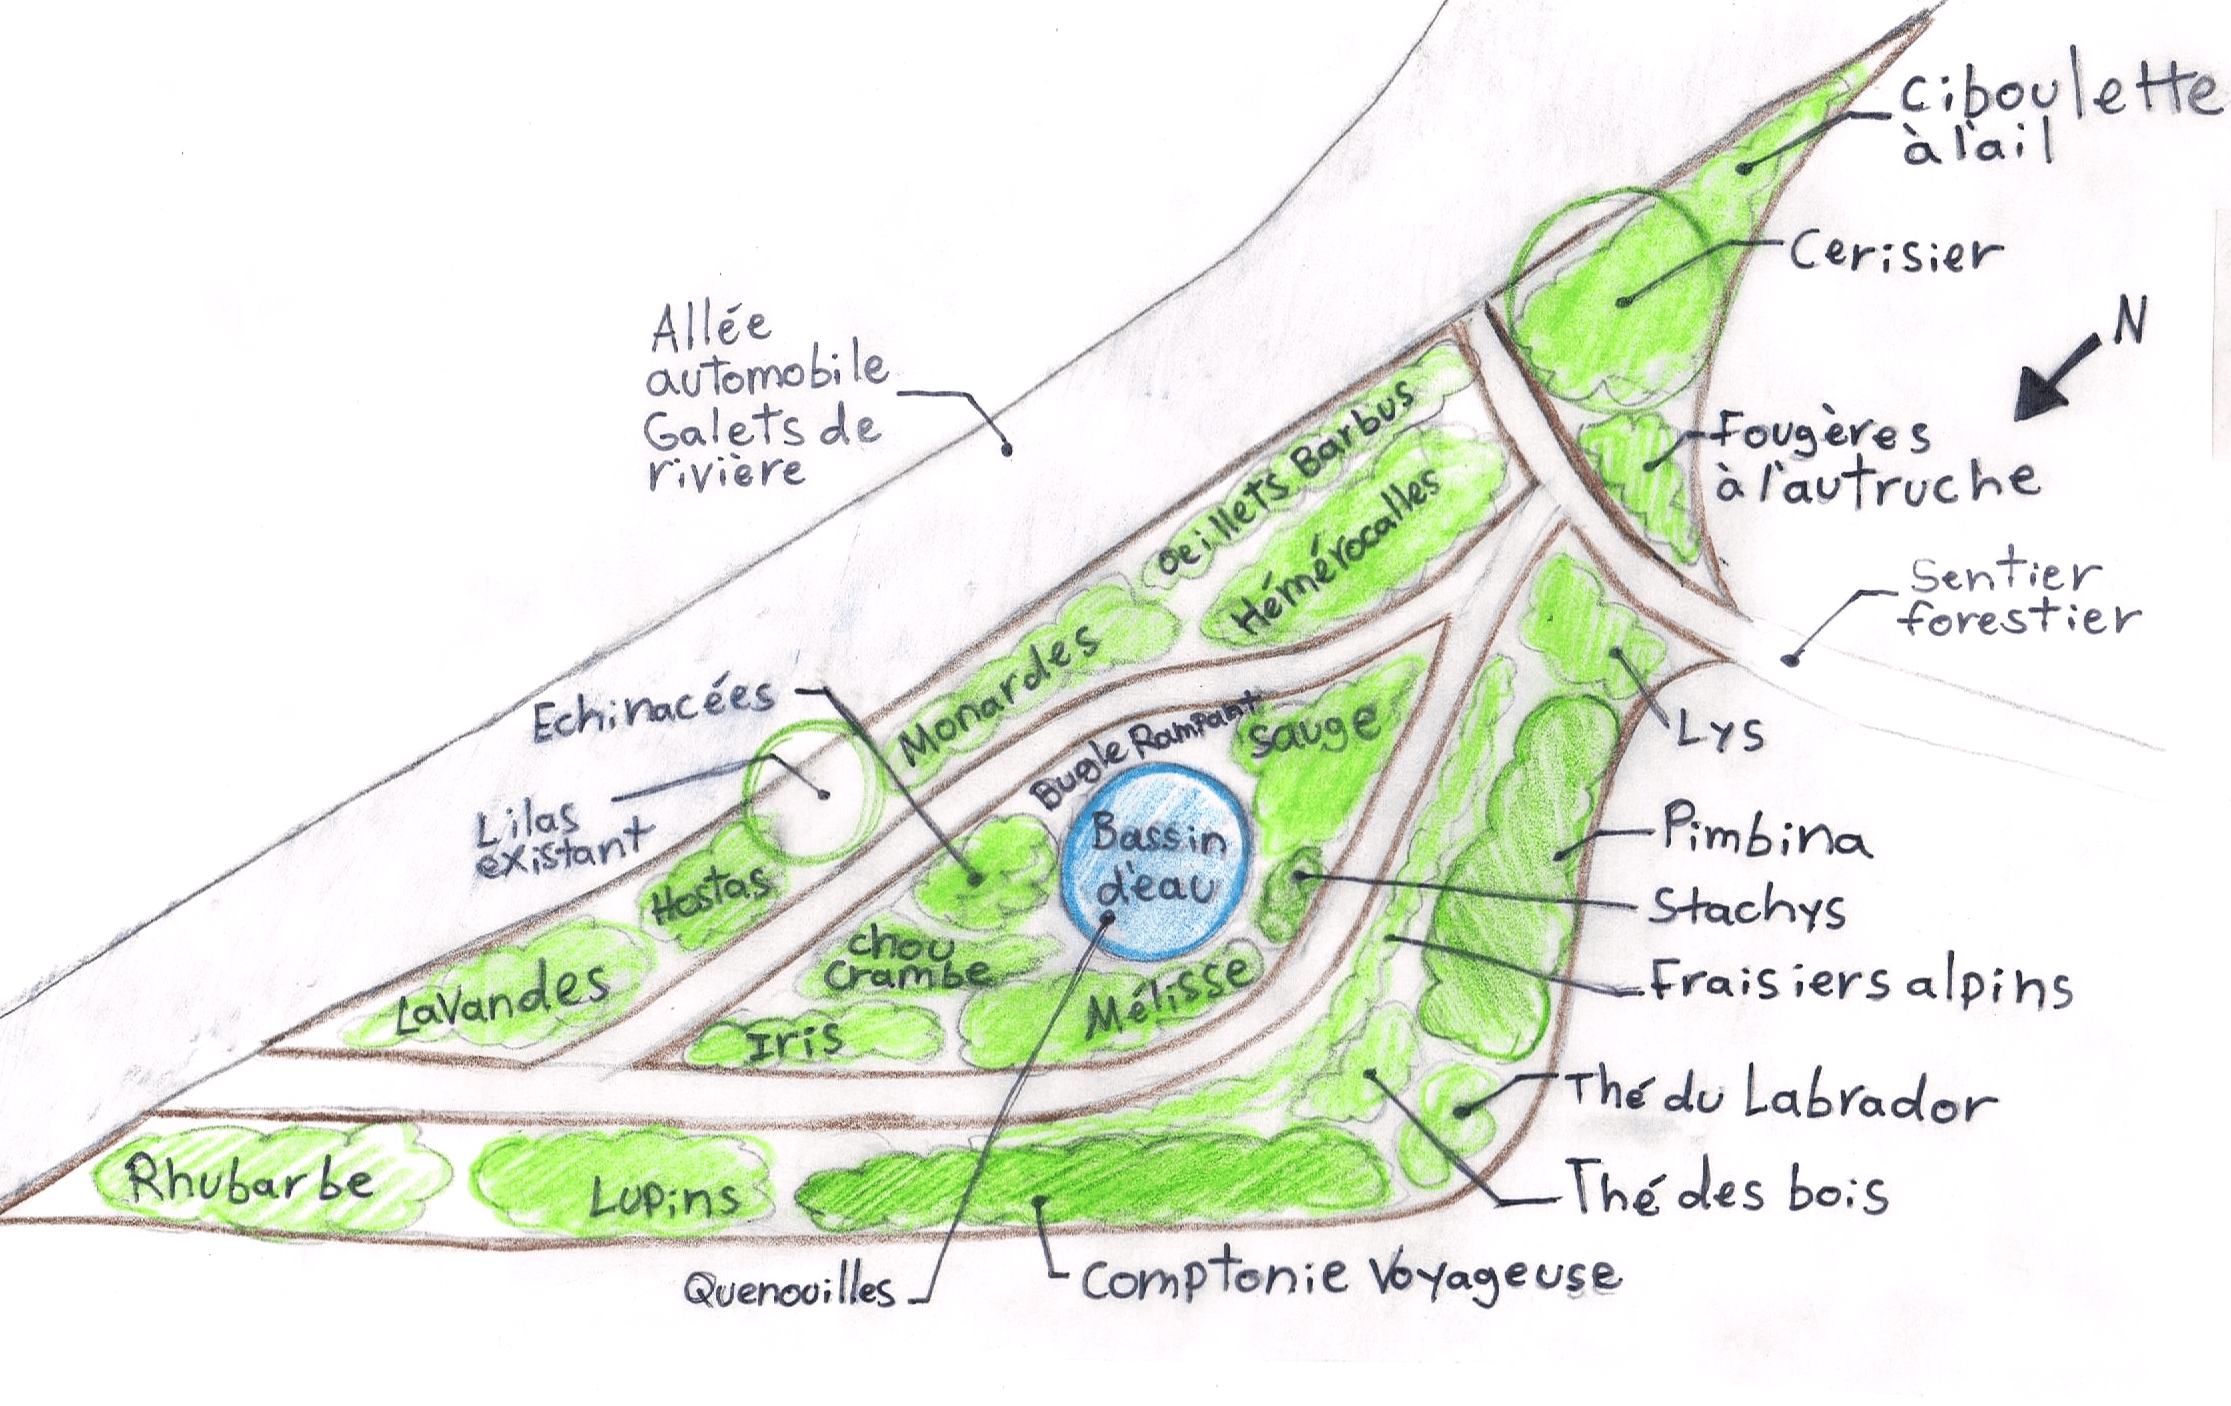 Ciboulette
à l'ail
Cerisier
N
Allée
automobile
Galets de
rivière
Fougères
à l'autruche
Oeillets Barbus
Hémérocalles
Sentier
forestier
Monardes
Echinacées
Bugle Rampant
Sauge
Lys
Lilas
existant
Bassin
d'eau
Pimbina
Hostas
Stachys
chou
Crambe
Lavandes
Mélisse
Fraisiers alpins
Iris
Thé du Labrador
Rhubarbe
Lupins
Thé des bois
Quenouilles
Comptonie Voyageuse